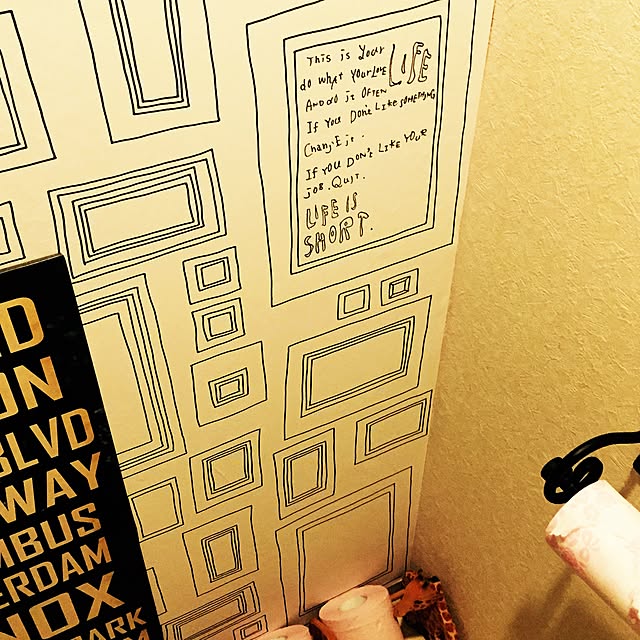 This is Your
do what YOUR LOVE LIFE
AND do it OFTEN
If You Don't Like SOMETHING
ChangE it.
If YOU DON't LIKE YOUR
JOB. QUIT.
LIFE IS
SHORT.
BLVD
WAY
NOX
PARK